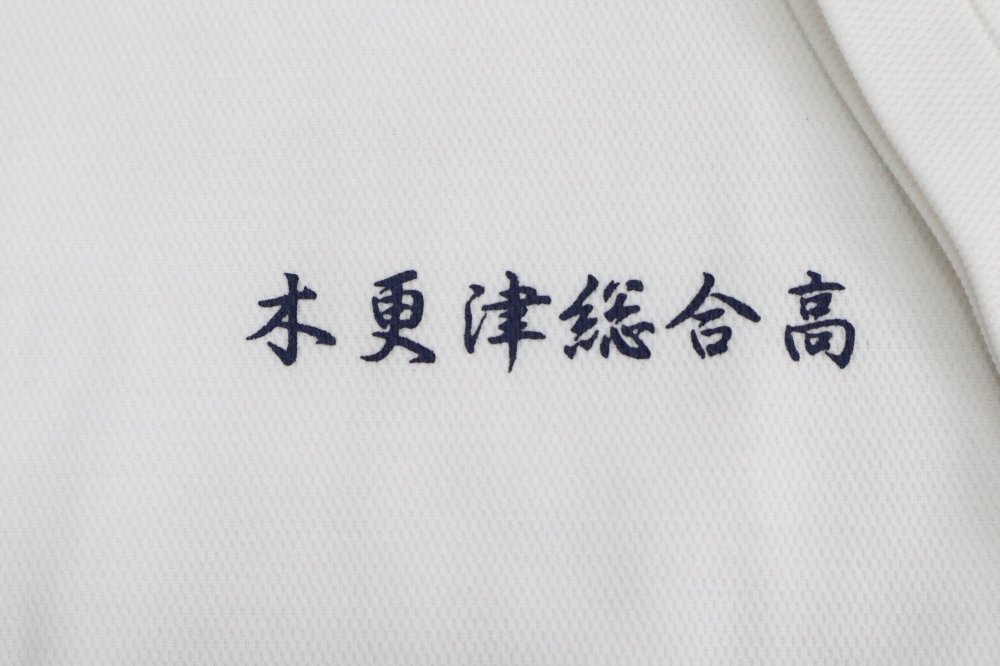 木更津総合高